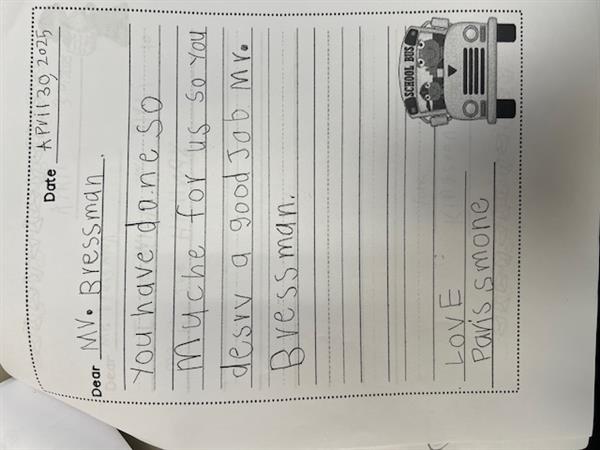 Date April 30, 2025
Dear Mr. Bressman.
You have done so
Myche for us so you
desrv a good Job Mr.
Bressman.
SCHOOL BUS
LOVE
Paris smone